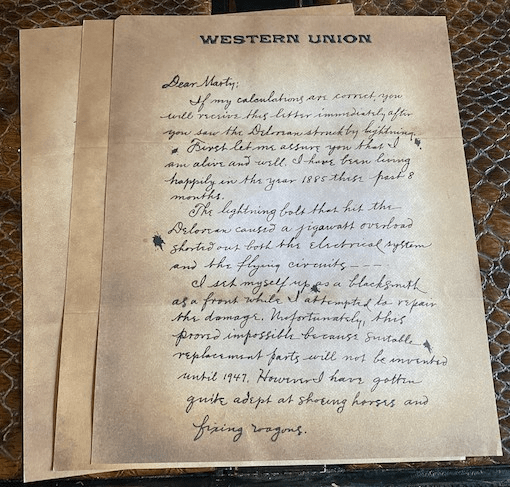 WESTERN UNION
Dear Marty;
If my calculations are correct, you
will receive this letter immediately after
you saw the Delorean struck by lightning.
First let me assure you that I
am alive and well. I have been living
happily in the year 1885 these past 8
months.
The lightning bolt that hit the
Delorean caused a jigawatt overload
shorted out both the electrical system
and the flying circuits - - - -
I set myself up as a blacksmith
as a front while I attempted to repair
the damage. Unfortunately, this
proved impossible because suitable
replacement parts will not be invented
until 1947. However I have gotten
quite adept at shoeing horses and
fixing wagons.